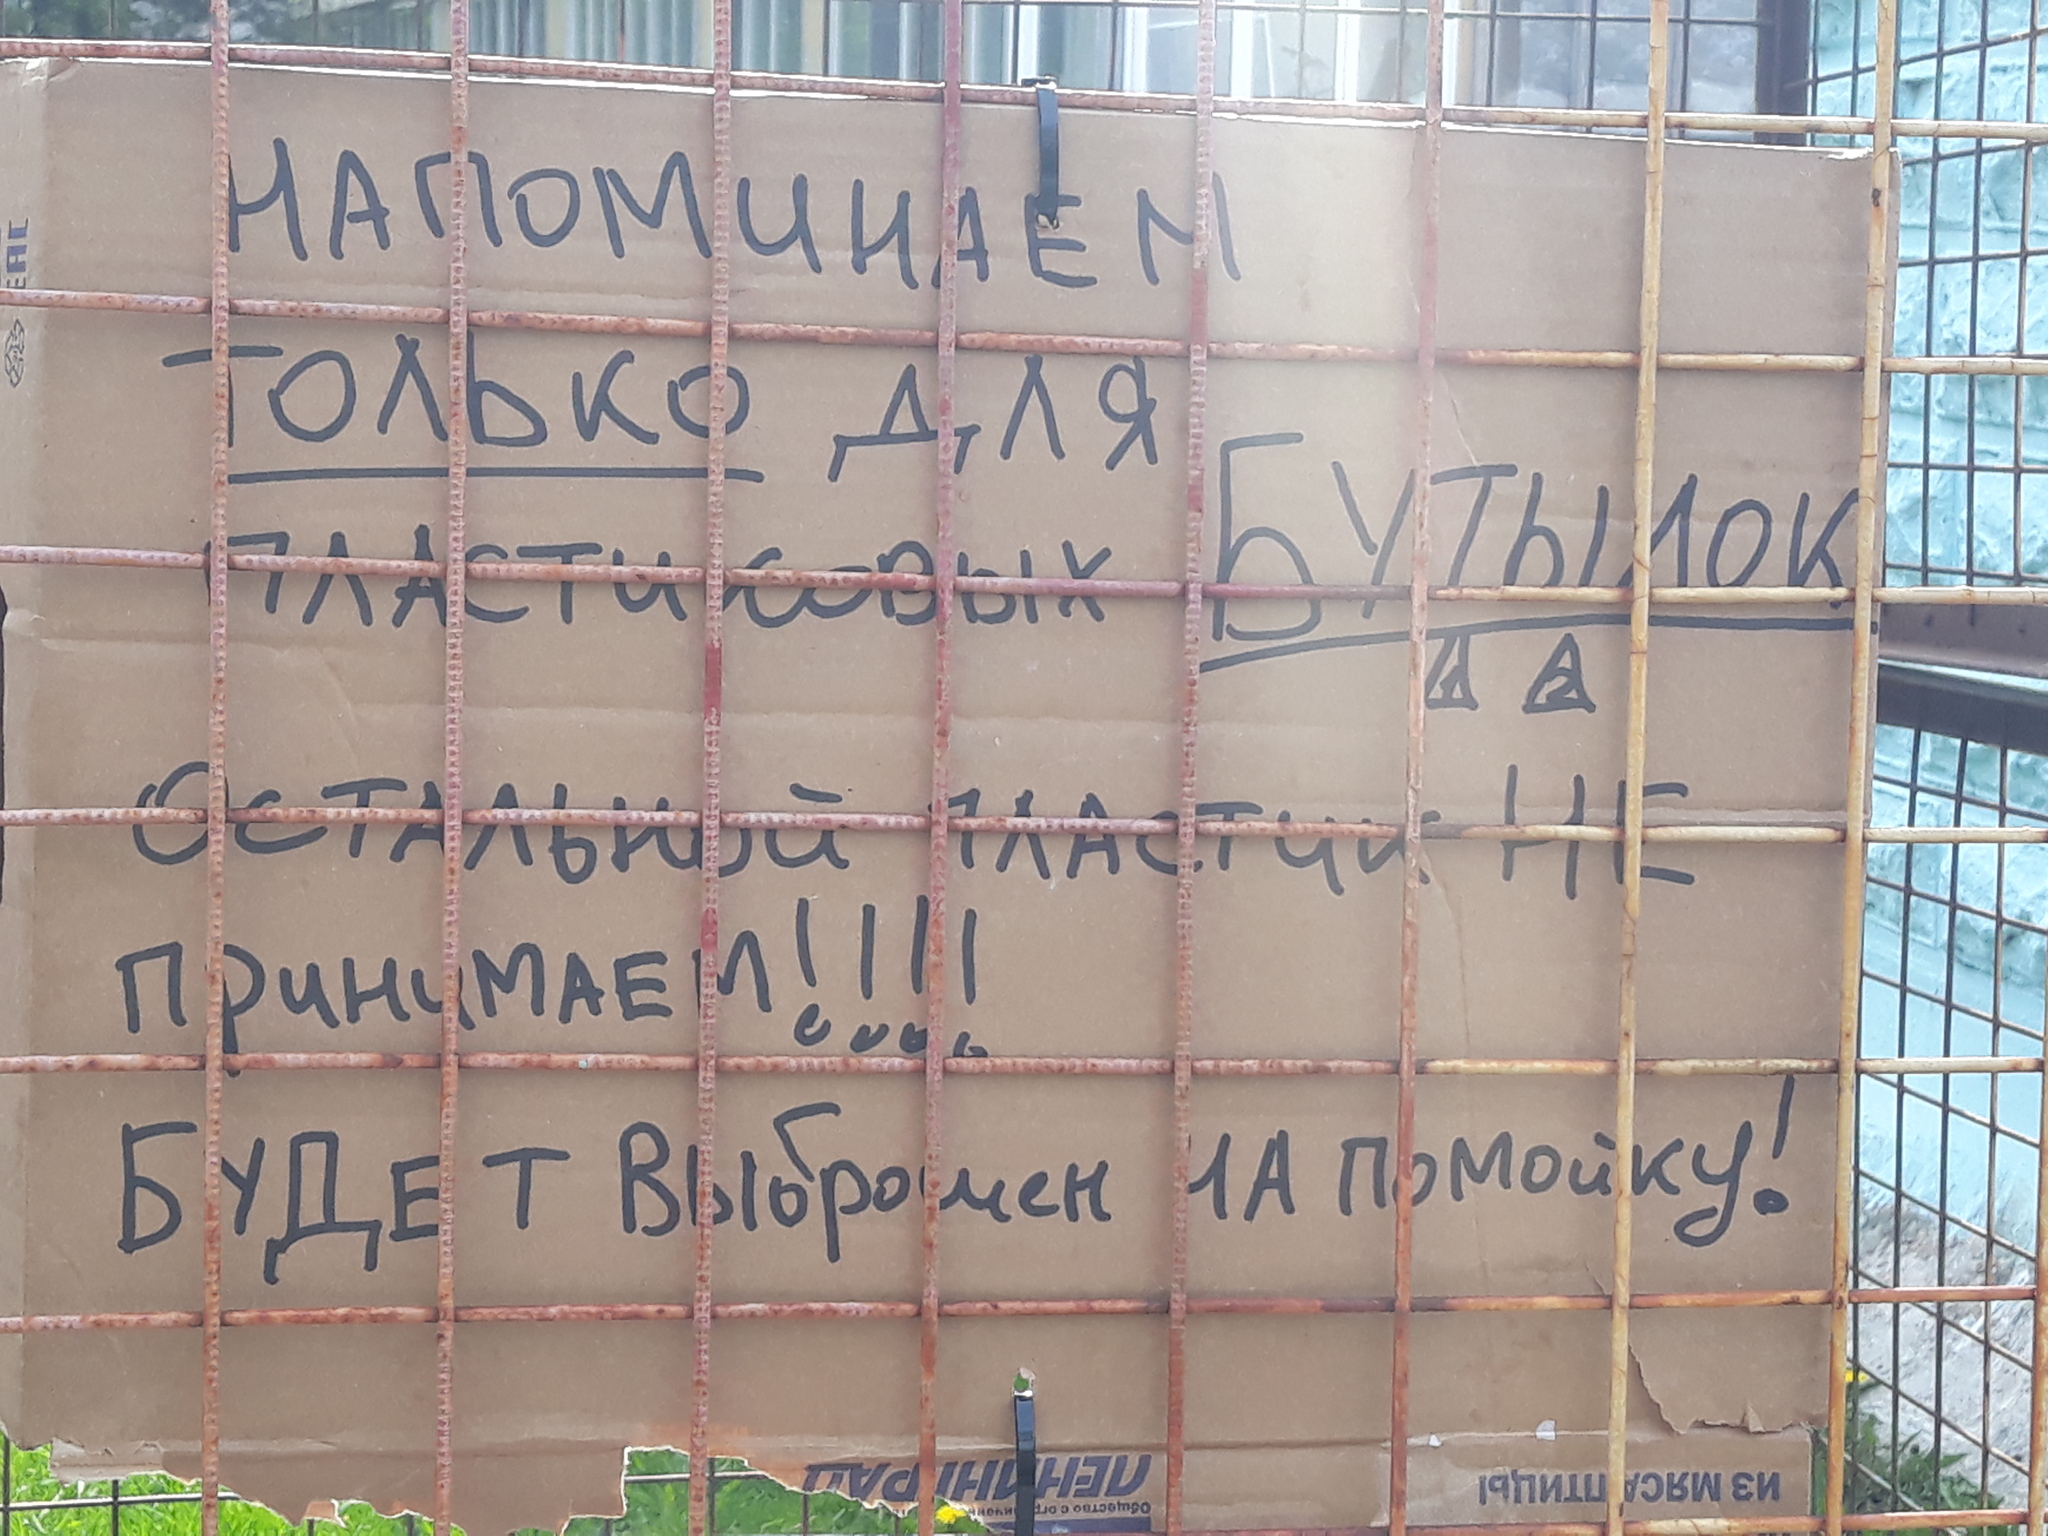 НАПОМИНАЕМ
ТОЛЬКО ДЛЯ
ПЛАСТИКОВЫХ БУТЫЛОК
1 2
ОСТАЛЬНОЙ ПЛАСТИК НЕ
ПРИНИМАЕМ!!!!
БУДЕТ ВЫБРОШЕН НА ПОМОЙКУ!
ЛЕНИНГРАД
Общество с ограничен
ИЗ МЯСА ПТИЦЫ